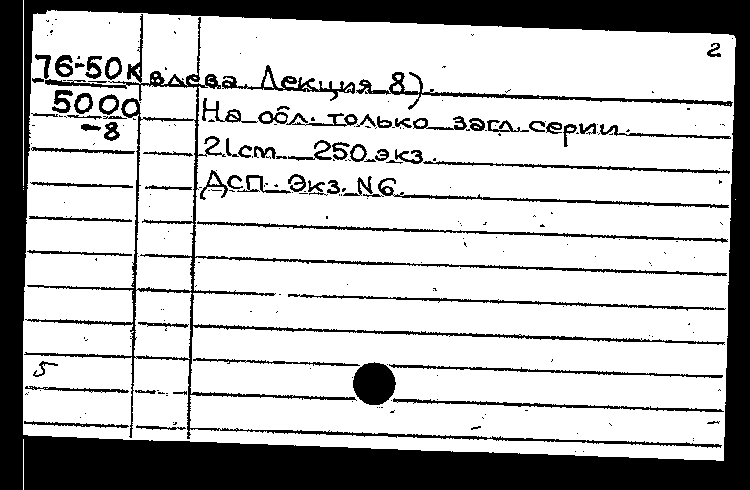 2
76-50к влева. Лекция 8).
5000 На обл. только загл. серии.
-8
21cm 250 экз.
ДСП. Экз. N6.
5